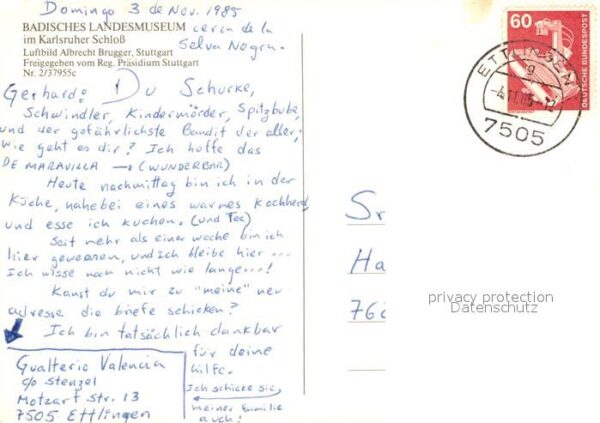 Domingo 3 de Nov. 1985
cerca de la
Selva Negra.
BADISCHES LANDESMUSEUM
im Karlsruher Schloß
Luftbild Albrecht Brugger, Stuttgart
Freigegeben vom Reg. Präsidium Stuttgart
Nr. 2/37955c
Gerhard: Du Schurke,
Schwindler, Kindermörder, Spitzbube,
und der gefährlichste Bandit der aller,
wie geht es dir? Ich hoffe das
DE MARAVILLA → (WUNDERBAR)
Heute nachmittag bin ich in der
Küche, nahebei eines warmes Kochherd,
und esse ich kuchen. (und Tee)
Seit mehr als einer woche bin ich
hier gewesen, und ich bleibe hier...
Ich wisse noch nicht wie lange...!
Kanst du mir zu "meine" neu
adresse die briefe schicken?
Ich bin tatsächlich dankbar
für deine
hilfe.
Ich schicke sie,
meiner Familie
auch!
Gualterio Valencia
c/o Stenzel
Motzart str. 13
7505 Ettlingen
60
DEUTSCHE BUNDESPOST
ETTLINGEN
g
-4.11.85-12
7505
Sr
Ha
76
privacy protection
Datenschutz